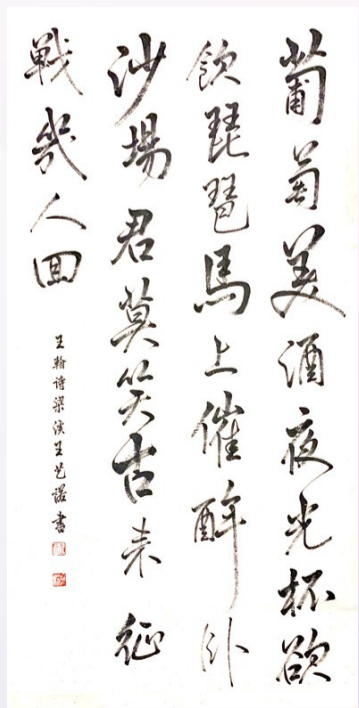 葡萄美酒夜光杯欲
飲琵琶馬上催醉卧
沙場君莫笑古来征
戦幾人回
王翰诗梁溪王艺諟书